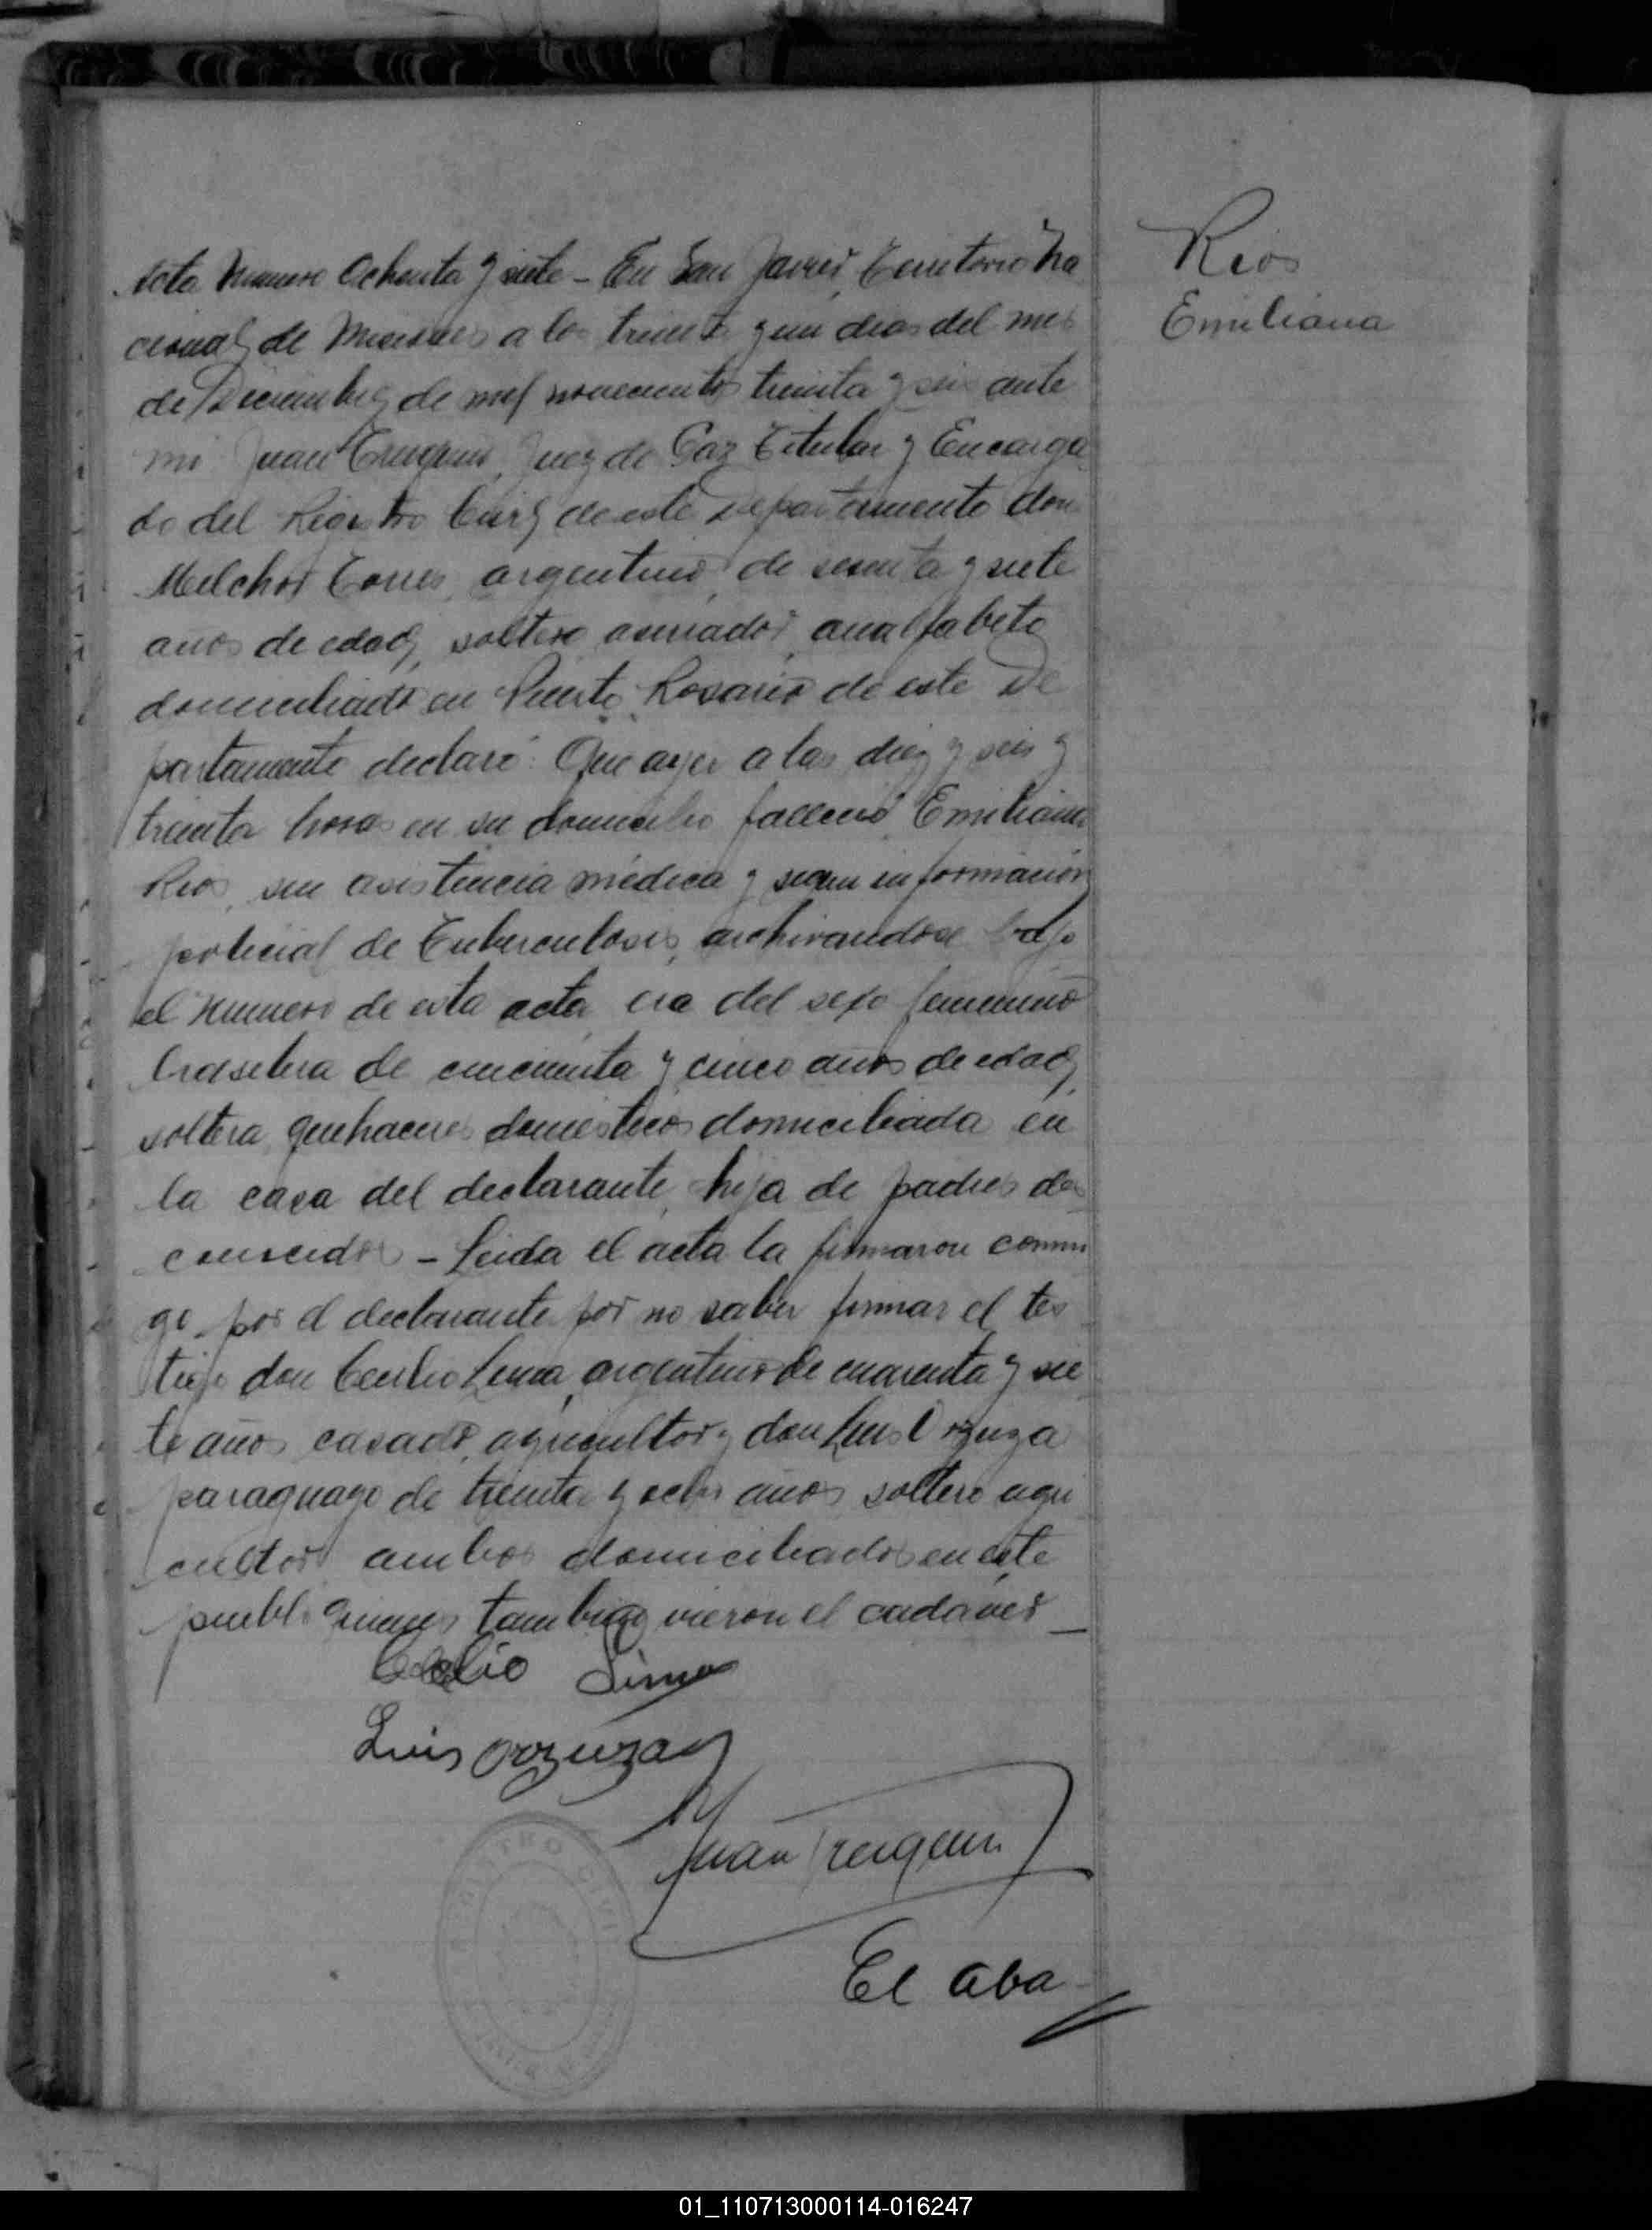 Rios
Emiliana
Acta Numero Ochenta y siete – En San Javier, Territorio Na
cional de Misiones a los treinta y un dias del mes
de Diciembre de mil novecientos treinta y seis ante
mi Juan Juez de Paz Titular y Encarga
do del Registro Civil de este Departamento don
Melchor Torres, argentino, de sesenta y siete
años de edad, soltero, analfabeto
domiciliado en Puerto Rosario de este De
partamento declaró: Que ayer a las diez y seis y
treinta horas en su domicilio falleció Emiliana
Rios, sin asistencia médica y segun información
policial de Tuberculosis, archivandose bajo
el numero de esta acta, era del sexo femenino
brasilera de cincuenta y cinco años de edad,
soltera, quehaceres domesticos domiciliada en
la casa del declarante, hija de padres des
conocidos – Leida el acta la firmaron conmi
go por el declarante por no saber firmar el tes
tigo don Cecilio Lima, argentino de cuarenta y sie
te años casado, agricultor y don Luis Orzuza
paraguayo de treinta y ocho años soltero agri
cultor ambos domiciliados en este
pueblo quienes tambien vieron el cadaver –
Lima
Luis Orzuza
Juan
El aba
REGISTRO CIVIL
01_110713000114-016247